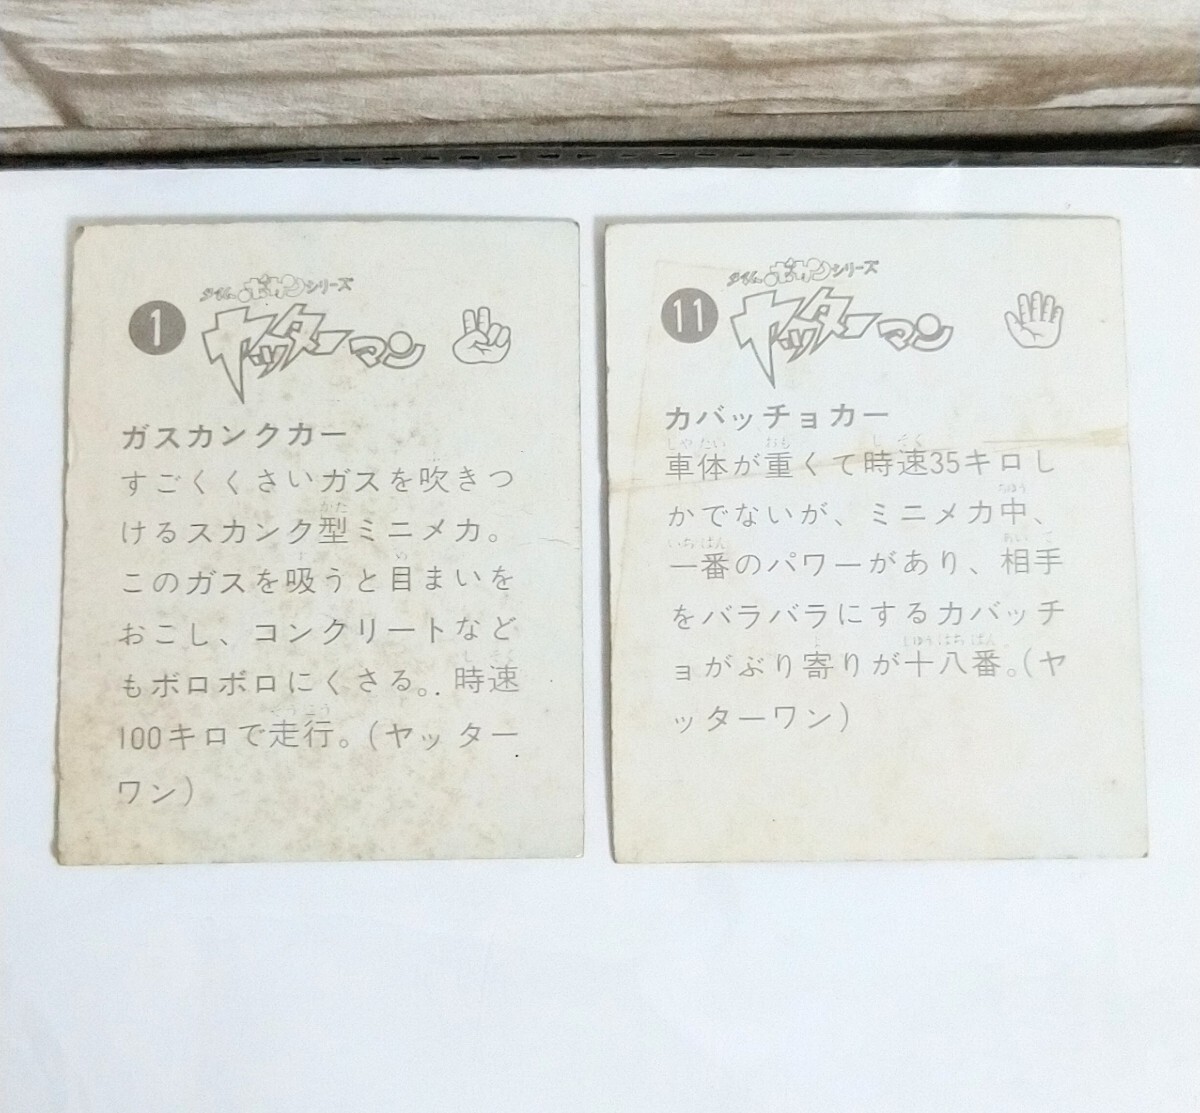 1
タイムボカンシリーズ
ヤッターマン
ガスカンクカー
すごくくさいガスを吹きつ
けるスカンク型ミニメカ。
このガスを吸うと目まいを
おこし、コンクリートなど
もボロボロにくさる。時速
100キロで走行。(ヤッター
ワン)
11
タイムボカンシリーズ
ヤッターマン
カバッチョカー
車体が重くて時速35キロし
かでないが、ミニメカ中、
一番のパワーがあり、相手
をバラバラにするカバッチ
ョがぶり寄りが十八番。(ヤ
ッターワン)